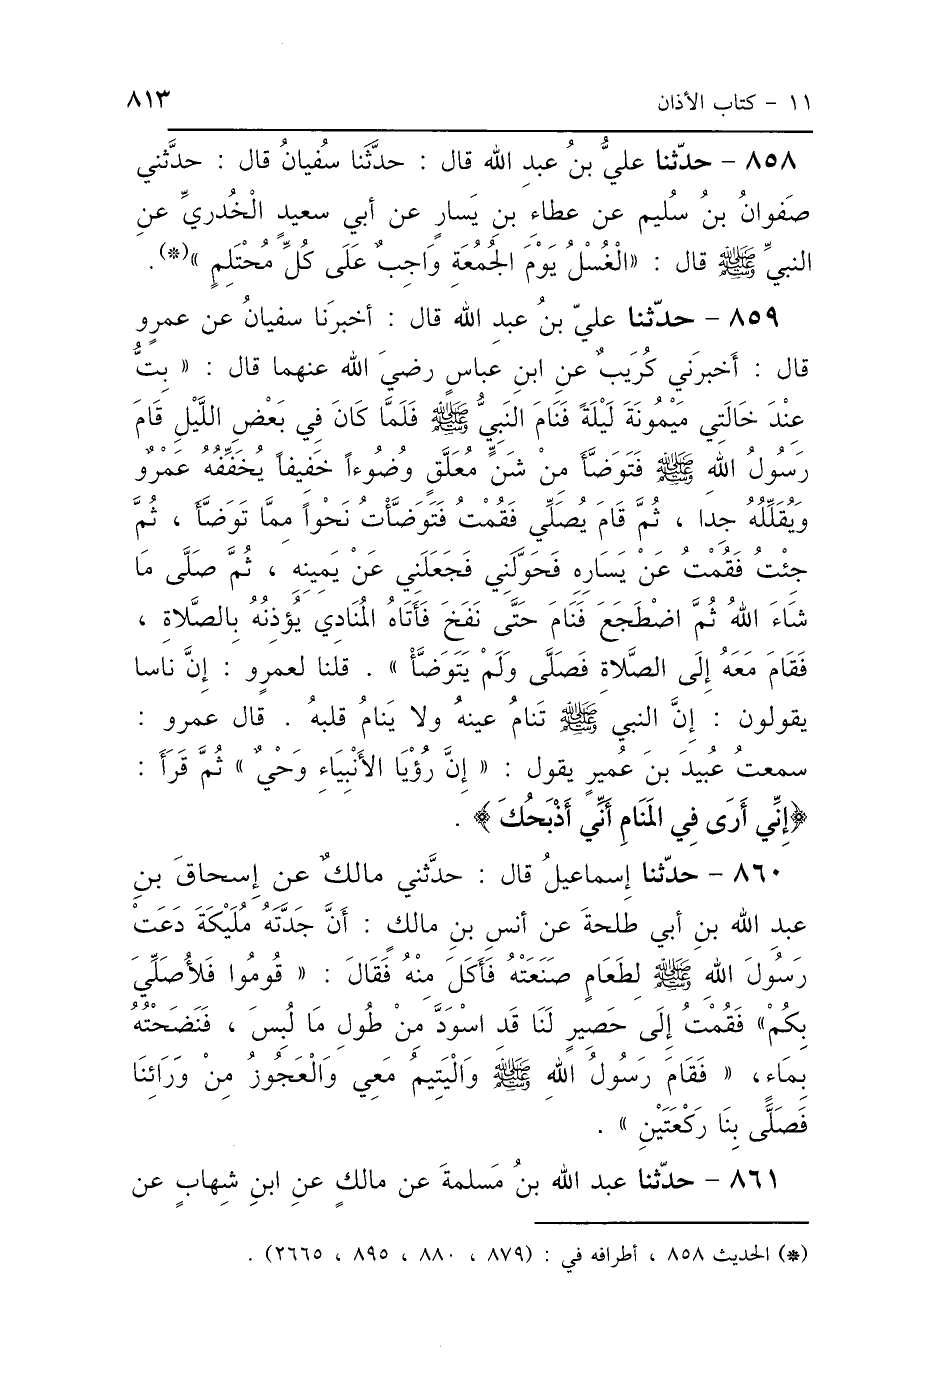 ١١ - كتاب الأذان ٨١٣
٨٥٨ - حدّثنا عليُّ بنُ عبدِ الله قال : حدَّثَنا سُفيانُ قال : حدَّثني
صَفوانُ بنُ سُليمٍ عن عطاءِ بنِ يَسارٍ عن أبي سعيدٍ الْخُدريِّ عنِ
النبيِّ ﷺ قال : «الْغُسْلُ يَوْمَ الجُمُعَةِ وَاجِبٌ عَلَى كُلِّ مُحْتَلِمٍ »(*).
٨٥٩ - حدّثنا عليّ بنُ عبدِ الله قال : أخبرَنا سفيانُ عن عمرٍو
قال : أخبرَني كُرَيبٌ عنِ ابنِ عباسٍ رضيَ الله عنهما قال : « بِتُّ
عِنْدَ خَالَتِي مَيْمُونَةَ لَيْلَةً فَنَامَ النَبيُّ ﷺ فَلَمَّا كَانَ فِي بَعْضِ اللَّيْلِ قَامَ
رَسُولُ الله ﷺ فَتَوَضَّأَ مِنْ شَنٍّ مُعَلَّقٍ وُضُوءاً خَفيفاً يُخَفِّفُهُ عَمْرٌو
وَيُقَلِّلُهُ جِدا ، ثُمَّ قامَ يُصَلِّي فَقُمْتُ فَتَوَضَّأْتُ نَحْواً مِمَّا تَوَضَّأَ ، ثُمَّ
جِئْتُ فَقُمْتُ عَنْ يَسَارِهِ فَحَوَّلَنِي فَجَعَلَنِي عَنْ يَمِينِهِ ، ثُمَّ صَلَّى مَا
شَاءَ اللهُ ثُمَّ اضْطَجَعَ فَنَامَ حَتَّى نَفَخَ فَأَتَاهُ المُنَادِي يُؤذِنُهُ بِالصَّلاةِ ،
فَقَامَ مَعَهُ إِلَى الصَّلاةِ فَصَلَّى وَلَمْ يَتَوَضَّأْ » . قلنا لعمرٍو : إنَّ ناسا
يقولون : إنَّ النبي ﷺ تَنامُ عينهُ ولا يَنامُ قلبهُ . قال عمرو :
سمعتُ عُبيدَ بنَ عُميرٍ يقول : « إنَّ رُؤْيَا الأَنْبِيَاءِ وَحْيٌ » ثُمَّ قَرَأَ :
﴿إنِّي أَرَى فِي المَنَامِ أَنِّي أَذْبَحُكَ ﴾ .
٨٦٠ - حدّثنا إسماعيلُ قال : حدَّثني مالكٌ عن إسحاقَ بنِ
عبدِ الله بنِ أبي طلحةَ عن أنسِ بنِ مالكٍ : أَنَّ جَدَّتَهُ مُلَيْكَةَ دَعَتْ
رَسُولَ اللهِ ﷺ لِطَعَامٍ صَنَعَتْهُ فَأَكَلَ مِنْهُ فَقَالَ : « قُومُوا فَلأُصَلِّيَ
بِكُمْ» فَقُمْتُ إلَى حَصِيرٍ لَنَا قَدِ اسْوَدَّ مِنْ طُولِ مَا لُبِسَ ، فَنَضَحْتُهُ
بِمَاءٍ، « فَقَامَ رَسُولُ اللهِ ﷺ وَالْيَتِيمُ مَعِي وَالْعَجُوزُ مِنْ وَرَائنَا
فَصَلَّى بِنَا رَكْعَتَيْنِ » .
٨٦١ - حدّثنا عبد الله بنُ مَسلمةَ عن مالكٍ عنِ ابنِ شِهابٍ عن
(*) الحديث ٨٥٨ ، أطرافه في : (٨٧٩ ، ٨٨٠ ، ٨٩٥ ، ٢٦٦٥) .